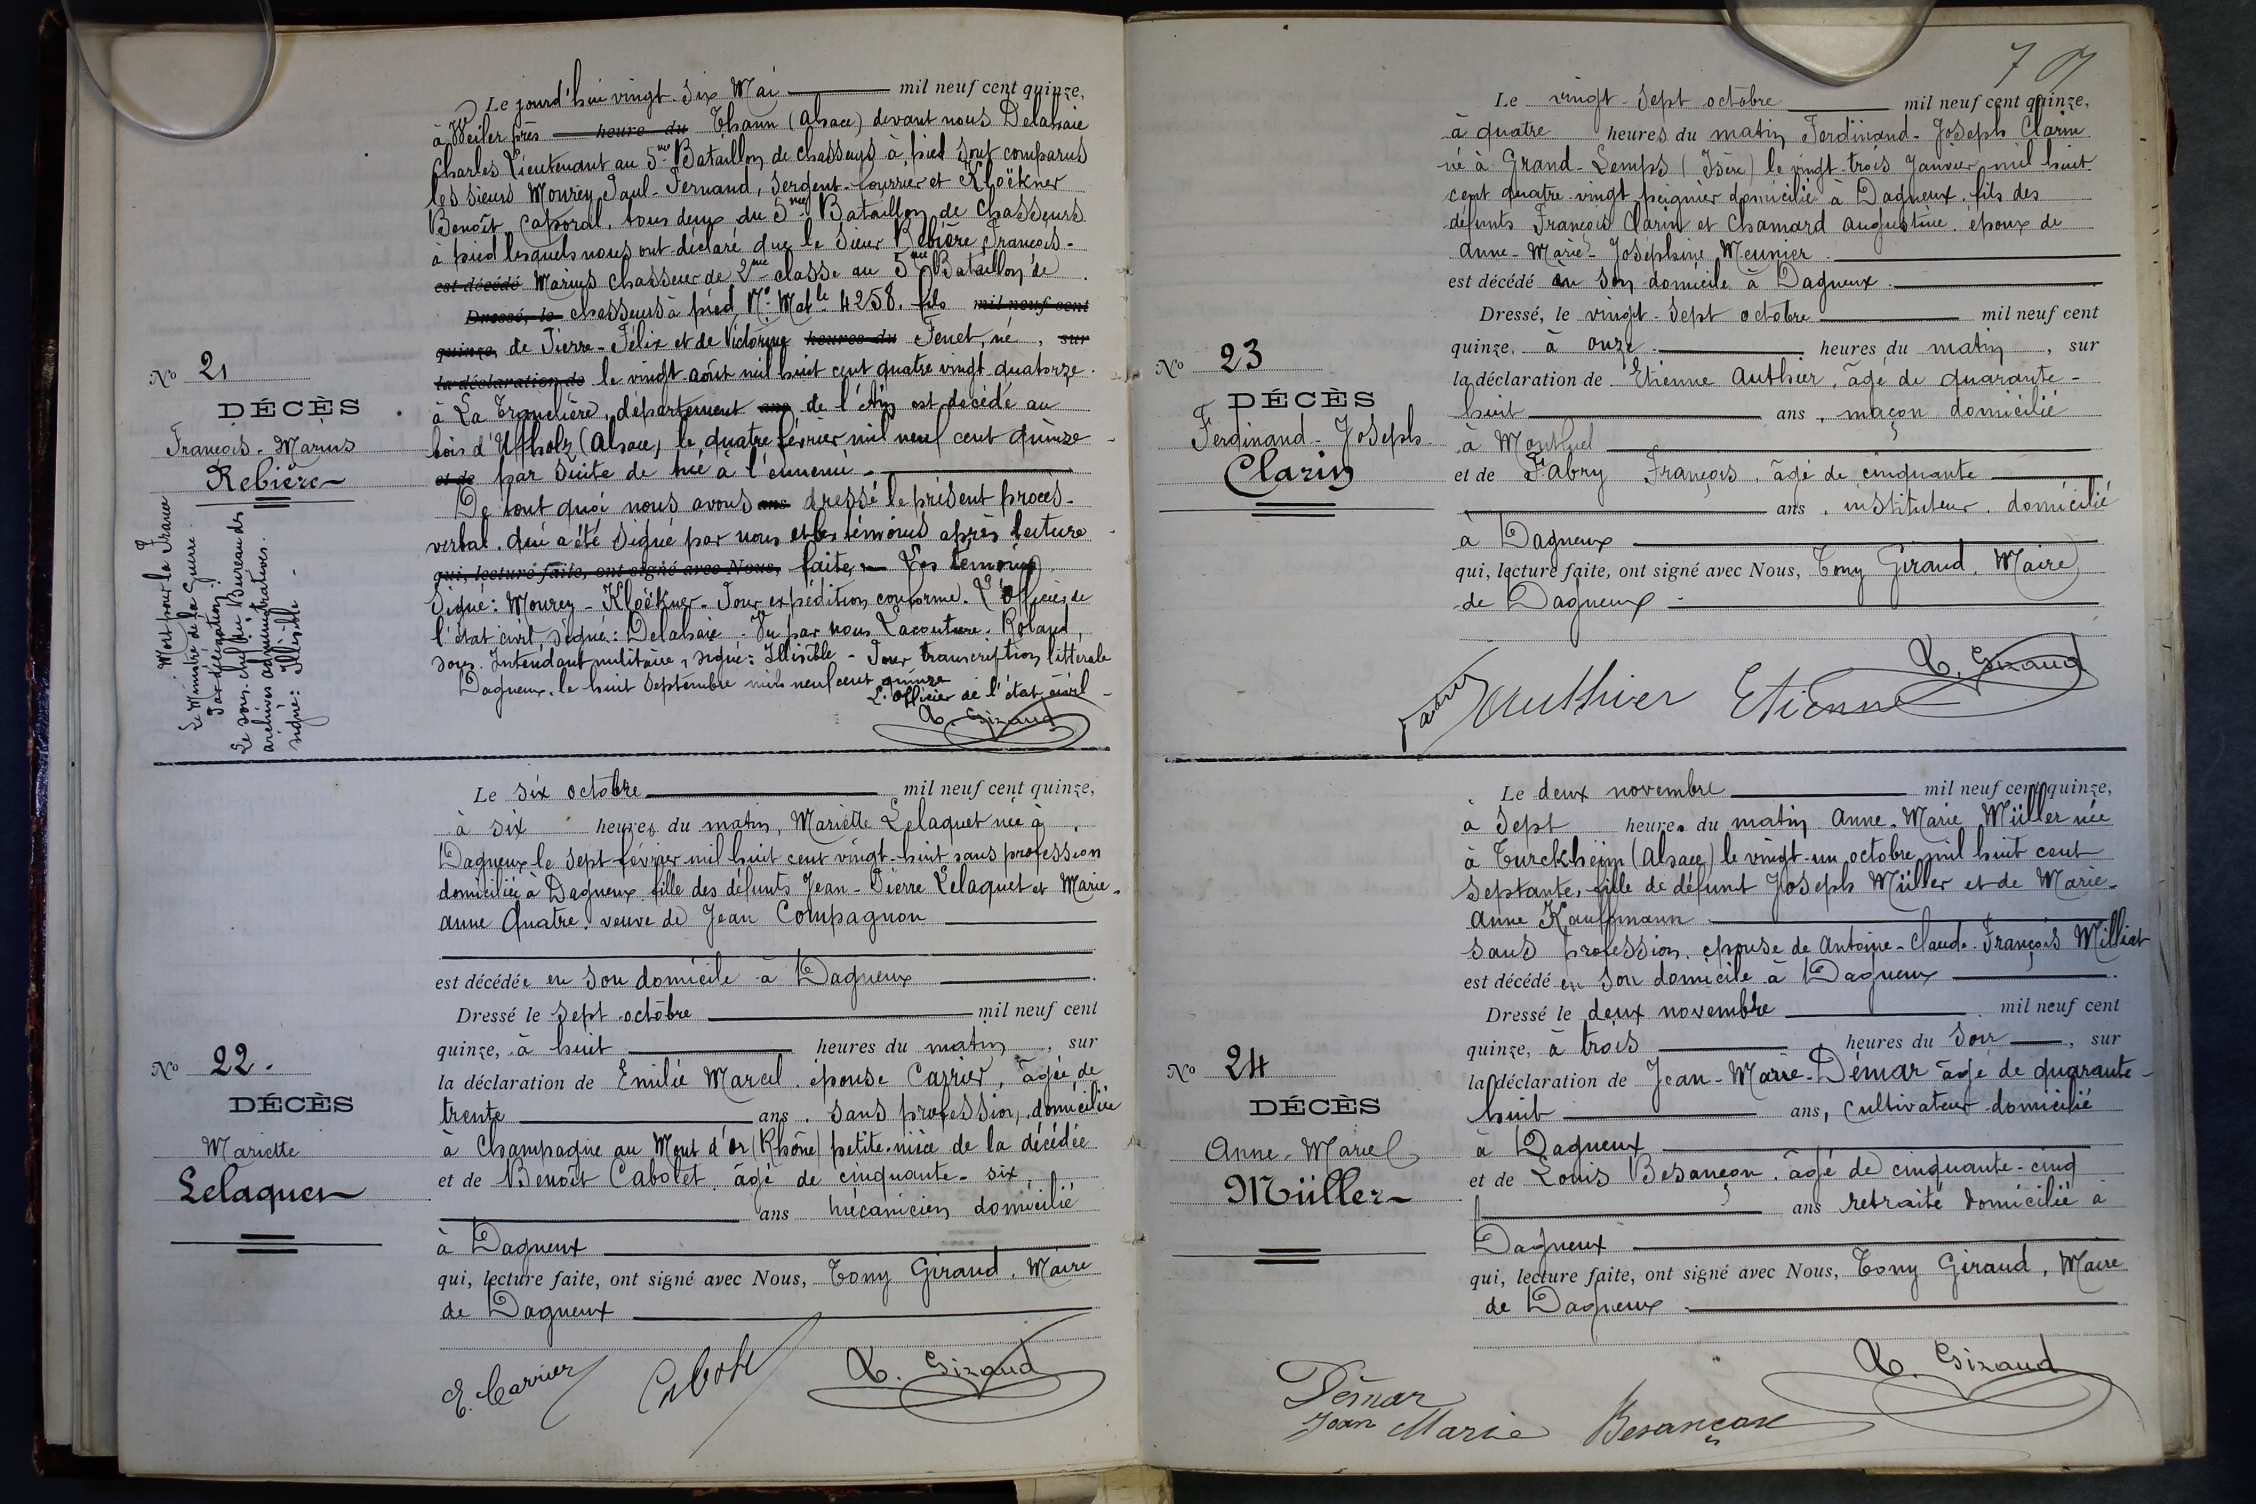 Le jourd'hui vingt-six Mai mil neuf cent quinze,
à Weiler près heure du Thann (Alsace) devant nous Delahaie
Charles Lieutenant au 5me Bataillon de chasseurs à pied sont comparus
les sieurs Mourey Paul-Fernand, sergent-fourrier et Kloëkner
Benoît, caporal, tous deux du 5me Bataillon de chasseurs
à pied lesquels nous ont déclaré que le sieur Rebière François-
est décédé Marius chasseur de 2me classe au 5me Bataillon de
Dressé, le chasseurs à pied No Matle 4258. fils mil neuf cent
quinze, de Pierre-Félix et de Victorine heures du Fenet, né, sur
la déclaration de le vingt août mil huit cent quatre vingt quatorze
à La Tranclière, département ans de l'Ain est décédé au
bois d'Uffholz (Alsace) le quatre février mil neuf cent quinze
et de par suite de tué à l'ennemi
De tout quoi nous avons ans dressé le présent procès-
verbal qui a été signé par nous et les témoins après lecture
qui, lecture faite, ont signé avec Nous, faite, - Les témoins
Signé: Mourey - Kloëkner - Pour expédition conforme. L'officier de
l'état civil, signé: Delahaie - Vu par nous Lacouture. Roland,
sous. Intendant militaire, signé: Illisible - Pour transcription littérale
Dagneux, le huit septembre mil neuf cent quinze
L'officier de l'état civil
T. Giraud
No 21
DÉCÈS
François-Marius
Rebière
Mort pour la France
Le Ministre de la Guerre
Par délégation:
Le sous-chef du Bureau des
archives administratives.
signé: Illisible
Le six octobre mil neuf cent quinze,
à six heures du matin, Mariette Lelaquet née à
Dagneux le sept février mil huit cent vingt-huit sans profession
domiciliée à Dagneux fille des défunts Jean-Pierre Lelaquet et Marie-
anne Quatre. veuve de Jean Compagnon
est décédée en son domicile à Dagneux
Dressé le sept octobre mil neuf cent
quinze, à huit heures du matin, sur
la déclaration de Emilie Marcel. épouse Carrier, âgée de
trente ans. sans profession, domiciliée
à Champagne au Mont d'or (Rhône) petite-nièce de la décédée
et de Benoît Cabolet âgé de cinquante-six
ans mécanicien domicilié
à Dagneux
qui, lecture faite, ont signé avec Nous, Tony Giraud. Maire
de Dagneux
E. Carrier T. Giraud
No 22.
DÉCÈS
Mariette
Lelaquet
7
Le vingt-sept octobre mil neuf cent quinze,
à quatre heures du matin Ferdinand-Joseph Clarin
né à Grand-Lemps (Isère) le vingt-trois janvier mil huit
cent quatre-vingt peignier domicilié à Dagneux. fils des
défunts François Clarin et Chamard Augustine. époux de
Anne-Marie-Joséphine Meunier
est décédé en son domicile à Dagneux
Dressé, le vingt-sept octobre mil neuf cent
quinze, à onze heures du matin, sur
la déclaration de Etienne Authier, âgé de quarante-
huit ans, maçon domicilié
à Montluel
et de Fabry François, âgé de cinquante
ans, instituteur, domicilié
à Dagneux
qui, lecture faite, ont signé avec Nous, Tony Giraud. Maire
de Dagneux
T. Giraud
Fabry Authier Etienne
No 23
DÉCÈS
Ferdinand-Joseph
Clarin
Le deux novembre mil neuf cent quinze,
à sept heures du matin Anne-Marie Müller née
à Turckheim (Alsace) le vingt-un octobre mil huit cent
septante, fille de défunt Joseph Müller et de Marie-
Anne Kauffmann
sans profession. épouse de Antoine-Claude-François Milliat
est décédé en son domicile à Dagneux
Dressé le deux novembre mil neuf cent
quinze, à trois heures du soir, sur
la déclaration de Jean-Marie-Démar âgé de quarante-
huit ans, cultivateur domicilié
à Dagneux
et de Louis Besançon. âgé de cinquante-cinq
ans retraité domicilié à
Dagneux
qui, lecture faite, ont signé avec Nous, Tony Giraud, Maire
de Dagneux
T. Giraud
Démar
Jean Marie Besançon
No 24
DÉCÈS
Anne-Marie
Müller